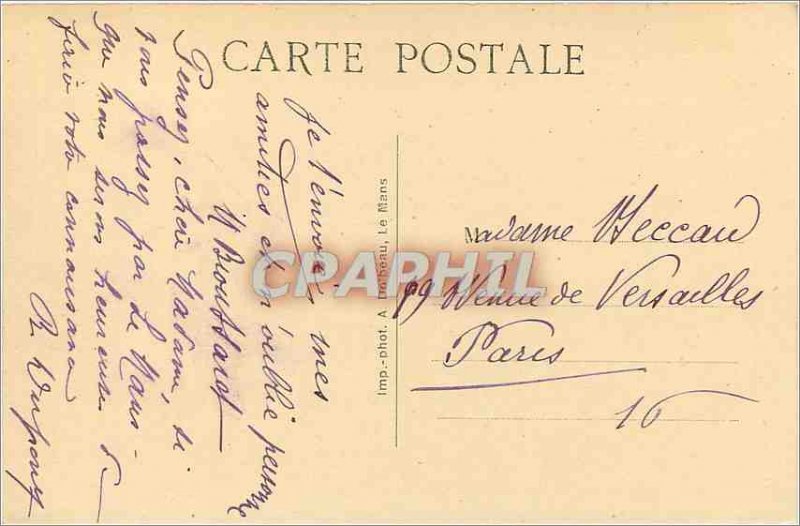 CARTE POSTALE
Je t'envoie mes
amitiés et n'oublie personne
Pensez, chère Madame, si
vous passez par Le Mans -
que nous serons heureuses de
faire votre connaissance
R. Dupont
Imp.-phot. A. Le Mans
CPARHIL
Madame
99 Avenue de Versailles
Paris
16